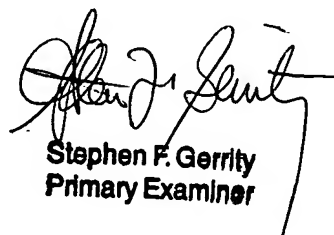 Stephen F. Gerrity
Primary Examiner